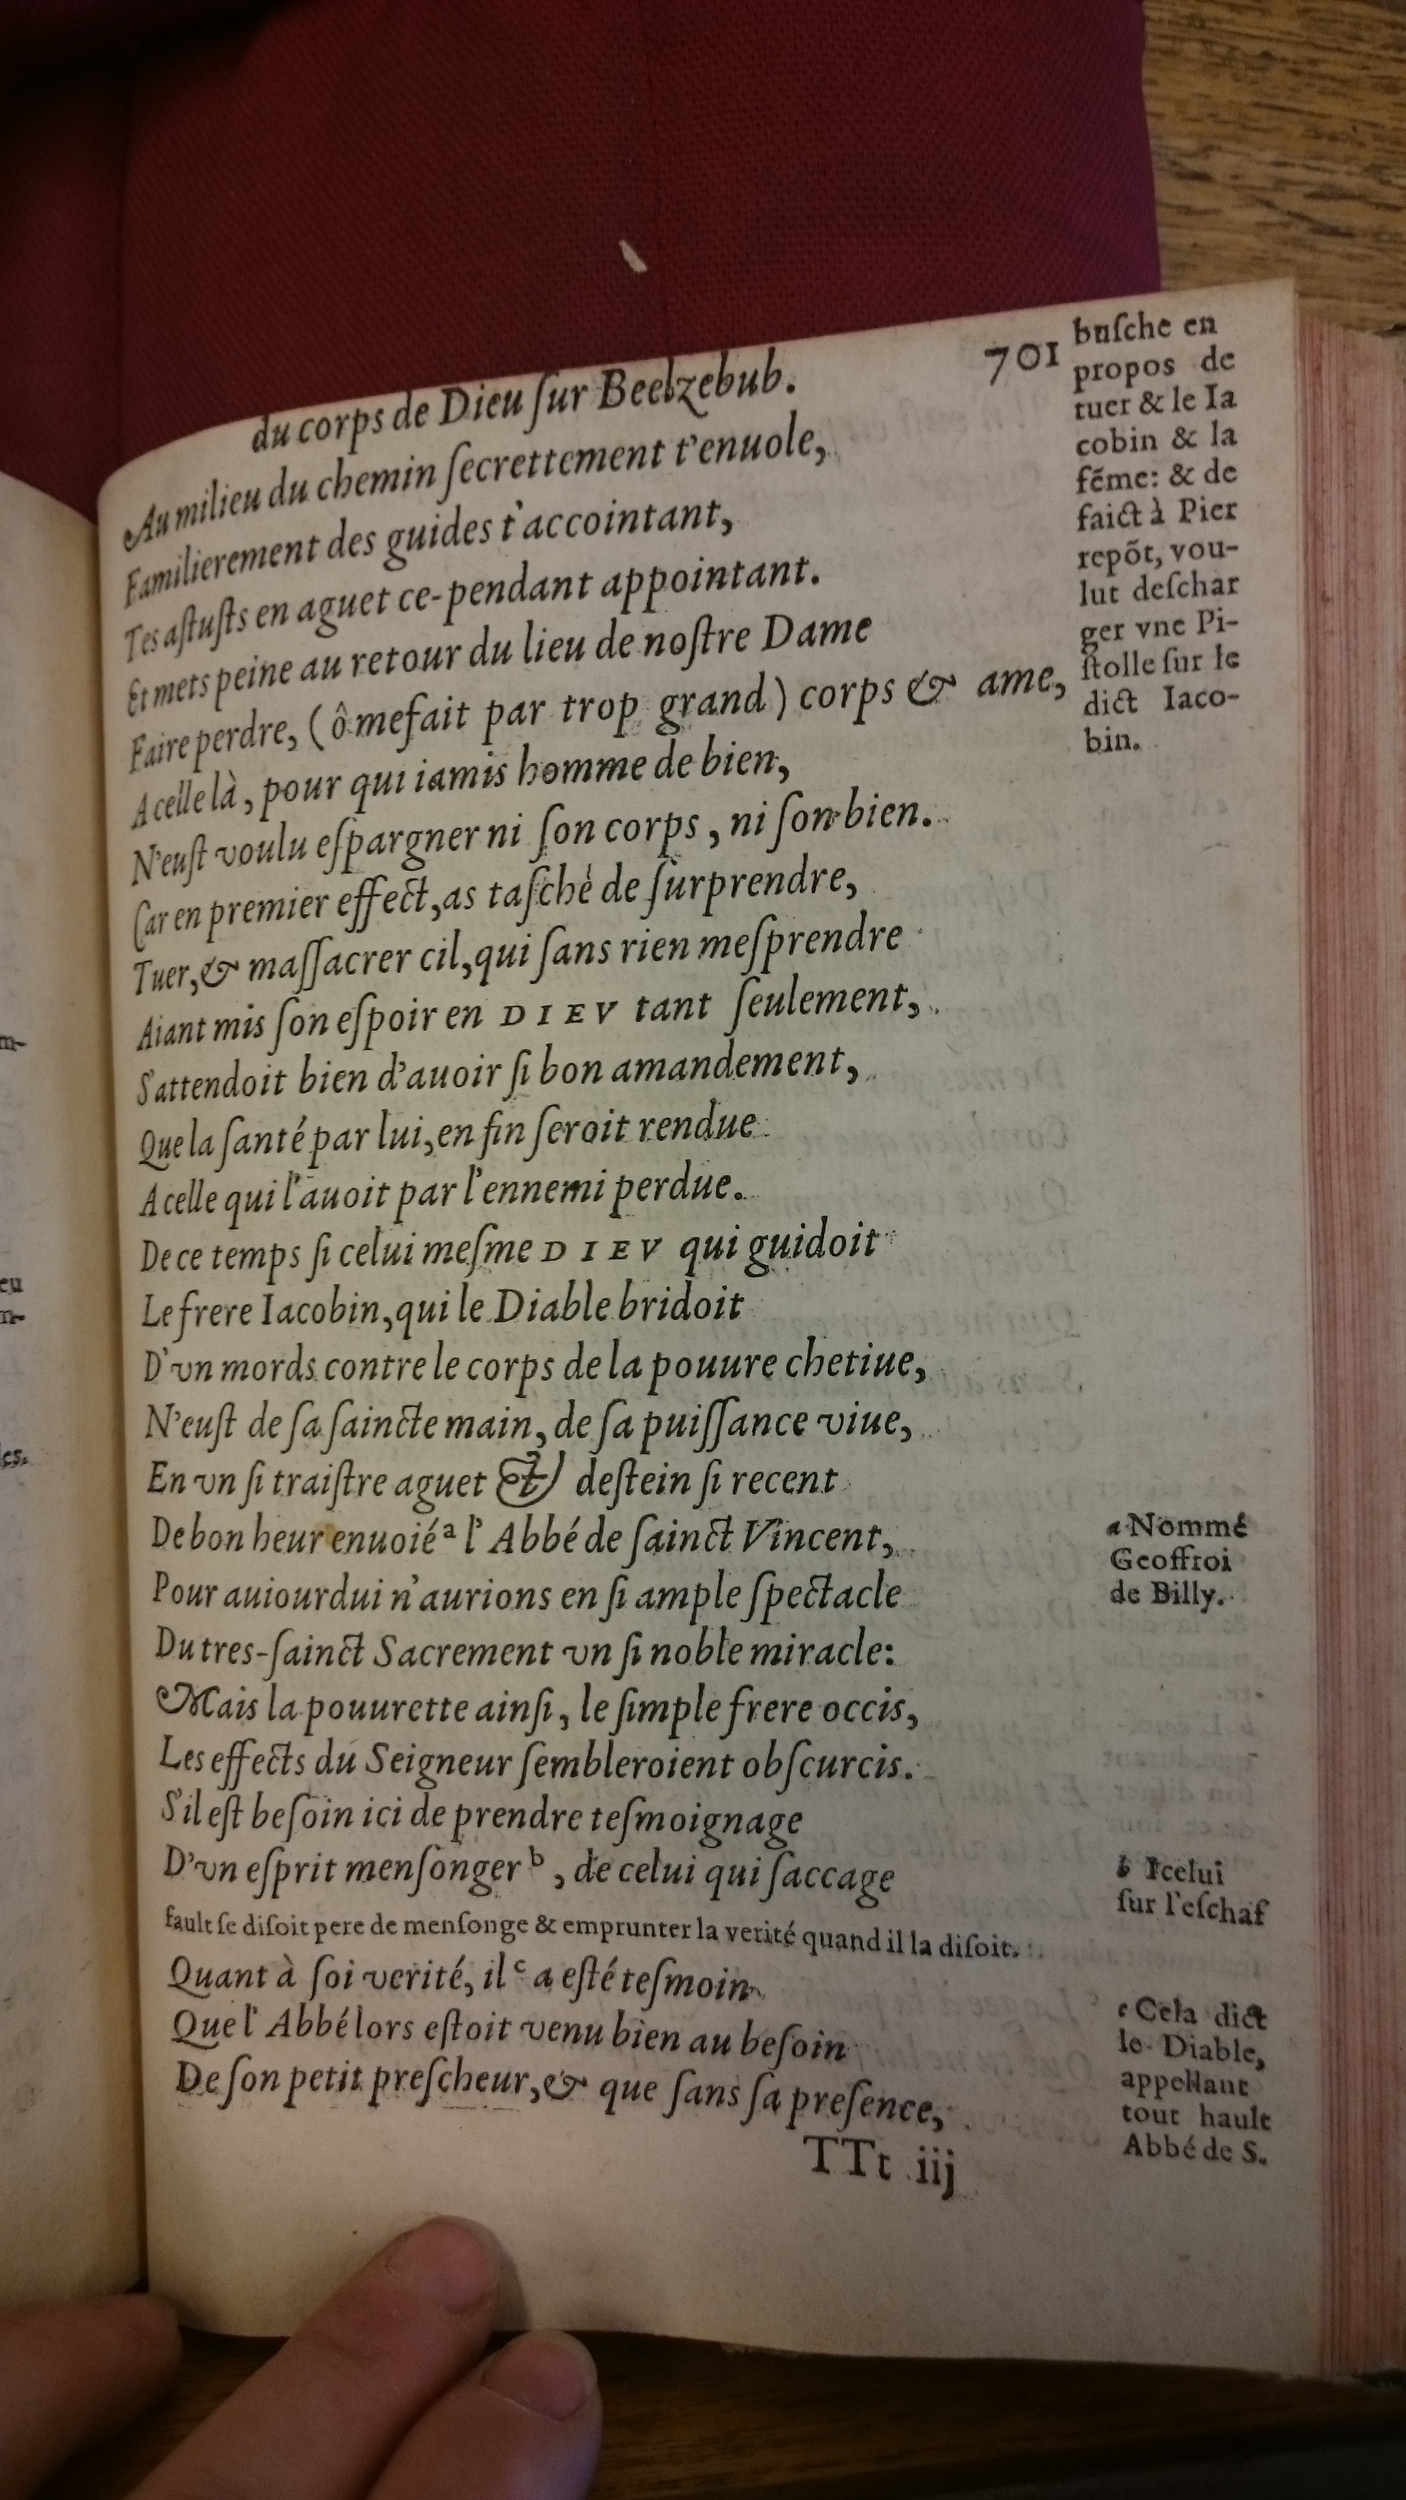 du corps de Dieu ſur Beelzebub. 701
Au milieu du chemin ſecrettement t'enuole,
Familierement des guides t'accointant,
Tes aſtuſts en aguet ce-pendant appointant.
Et mets peine au retour du lieu de noſtre Dame
Faire perdre, (ô mefait par trop grand) corps & ame,
A celle là, pour qui iamis homme de bien,
N'euſt voulu eſpargner ni ſon corps, ni ſon bien.
Car en premier effect, as taſché de ſurprendre,
Tuer, & maſſacrer cil, qui ſans rien meſprendre
Aiant mis ſon eſpoir en DIEV tant ſeulement,
S'attendoit bien d'auoir ſi bon amandement,
Que la ſanté par lui, en fin ſeroit rendue
A celle qui l'auoit par l'ennemi perdue.
De ce temps ſi celui meſme DIEV qui guidoit
Le frere Iacobin, qui le Diable bridoit
D'vn mords contre le corps de la pouure chetiue,
N'euſt de ſa ſaincte main, de ſa puiſſance viue,
En vn ſi traiſtre aguet & deſtein ſi recent
De bon heur enuoié a l'Abbé de ſainct Vincent,
Pour auiourdui n'aurions en ſi ample ſpectacle
Du tres-ſainct Sacrement vn ſi noble miracle:
Mais la pouurette ainſi, le ſimple frere occis,
Les effects du Seigneur ſembleroient obſcurcis.
S'il eſt beſoin ici de prendre teſmoignage
D'vn eſprit menſonger b, de celui qui ſaccage
fault ſe diſoit pere de menſonge & emprunter la verité quand il la diſoit.
Quant à ſoi verité, il c a eſté teſmoin
Que l'Abbé lors eſtoit venu bien au beſoin
De ſon petit preſcheur, & que ſans ſa preſence,
TTt iij
buſche en
propos de
tuer & le Ia
cobin & la
fẽme: & de
faict à Pier
repõt, vou-
lut deſchar
ger vne Pi-
ſtolle ſur le
dict Iaco-
bin.
a Nommé
Geoffroi
de Billy.
b Icelui
ſur l'eſchaf
c Cela dict
le Diable,
appellant
tout hault
Abbé de S.
m-
eu
n-
es.